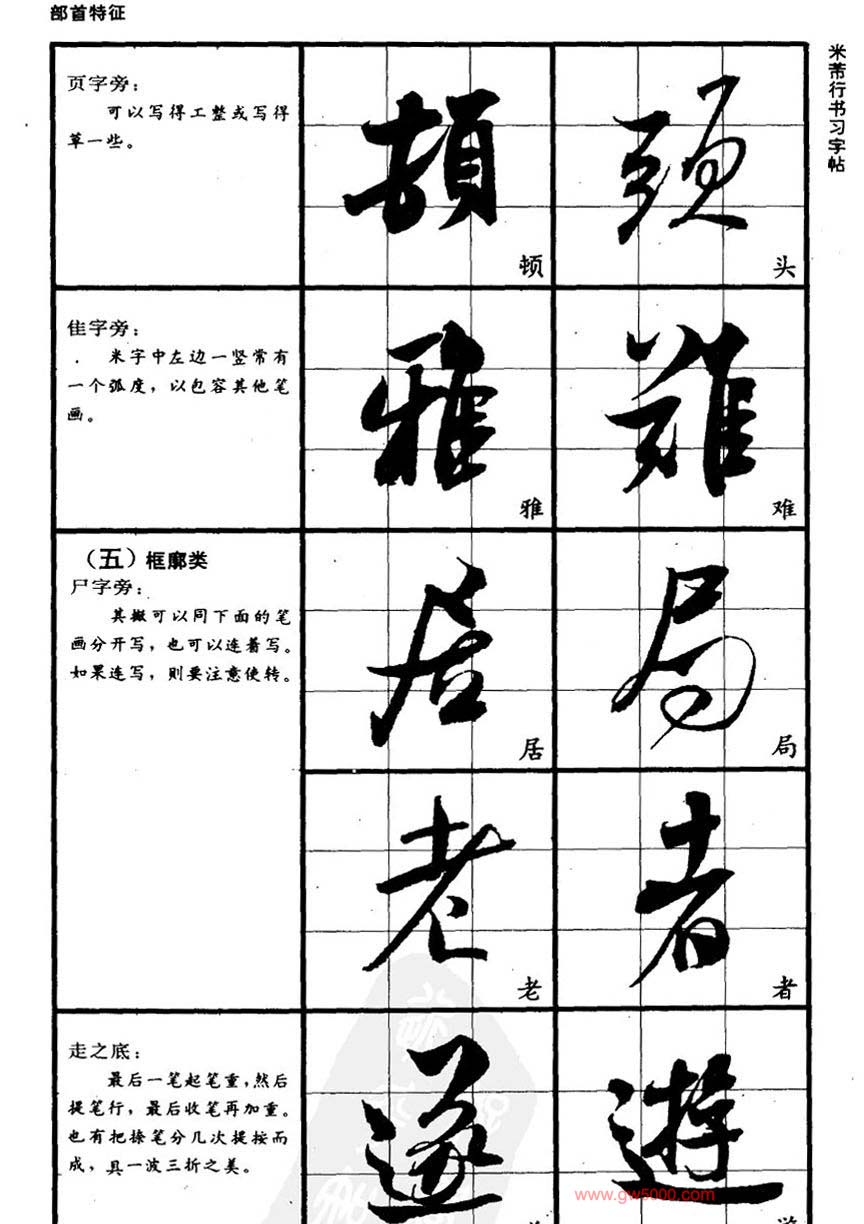 部首特征
米芾行书习字帖
页字旁：
可以写得工整或写得
草一些。
頓
顿
頭
头
隹字旁：
米字中左边一竖常有
一个弧度，以包容其他笔
画。
雅
雅
難
难
（五）框廓类
尸字旁：
其撇可以同下面的笔
画分开写，也可以连着写。
如果连写，则要注意使转。
居
居
局
局
老
老
者
者
走之底：
最后一笔起笔重，然后
提笔行，最后收笔再加重。
也有把捺笔分几次提按而
成，具一波三折之美。
遂
遊
www.gw5000.com